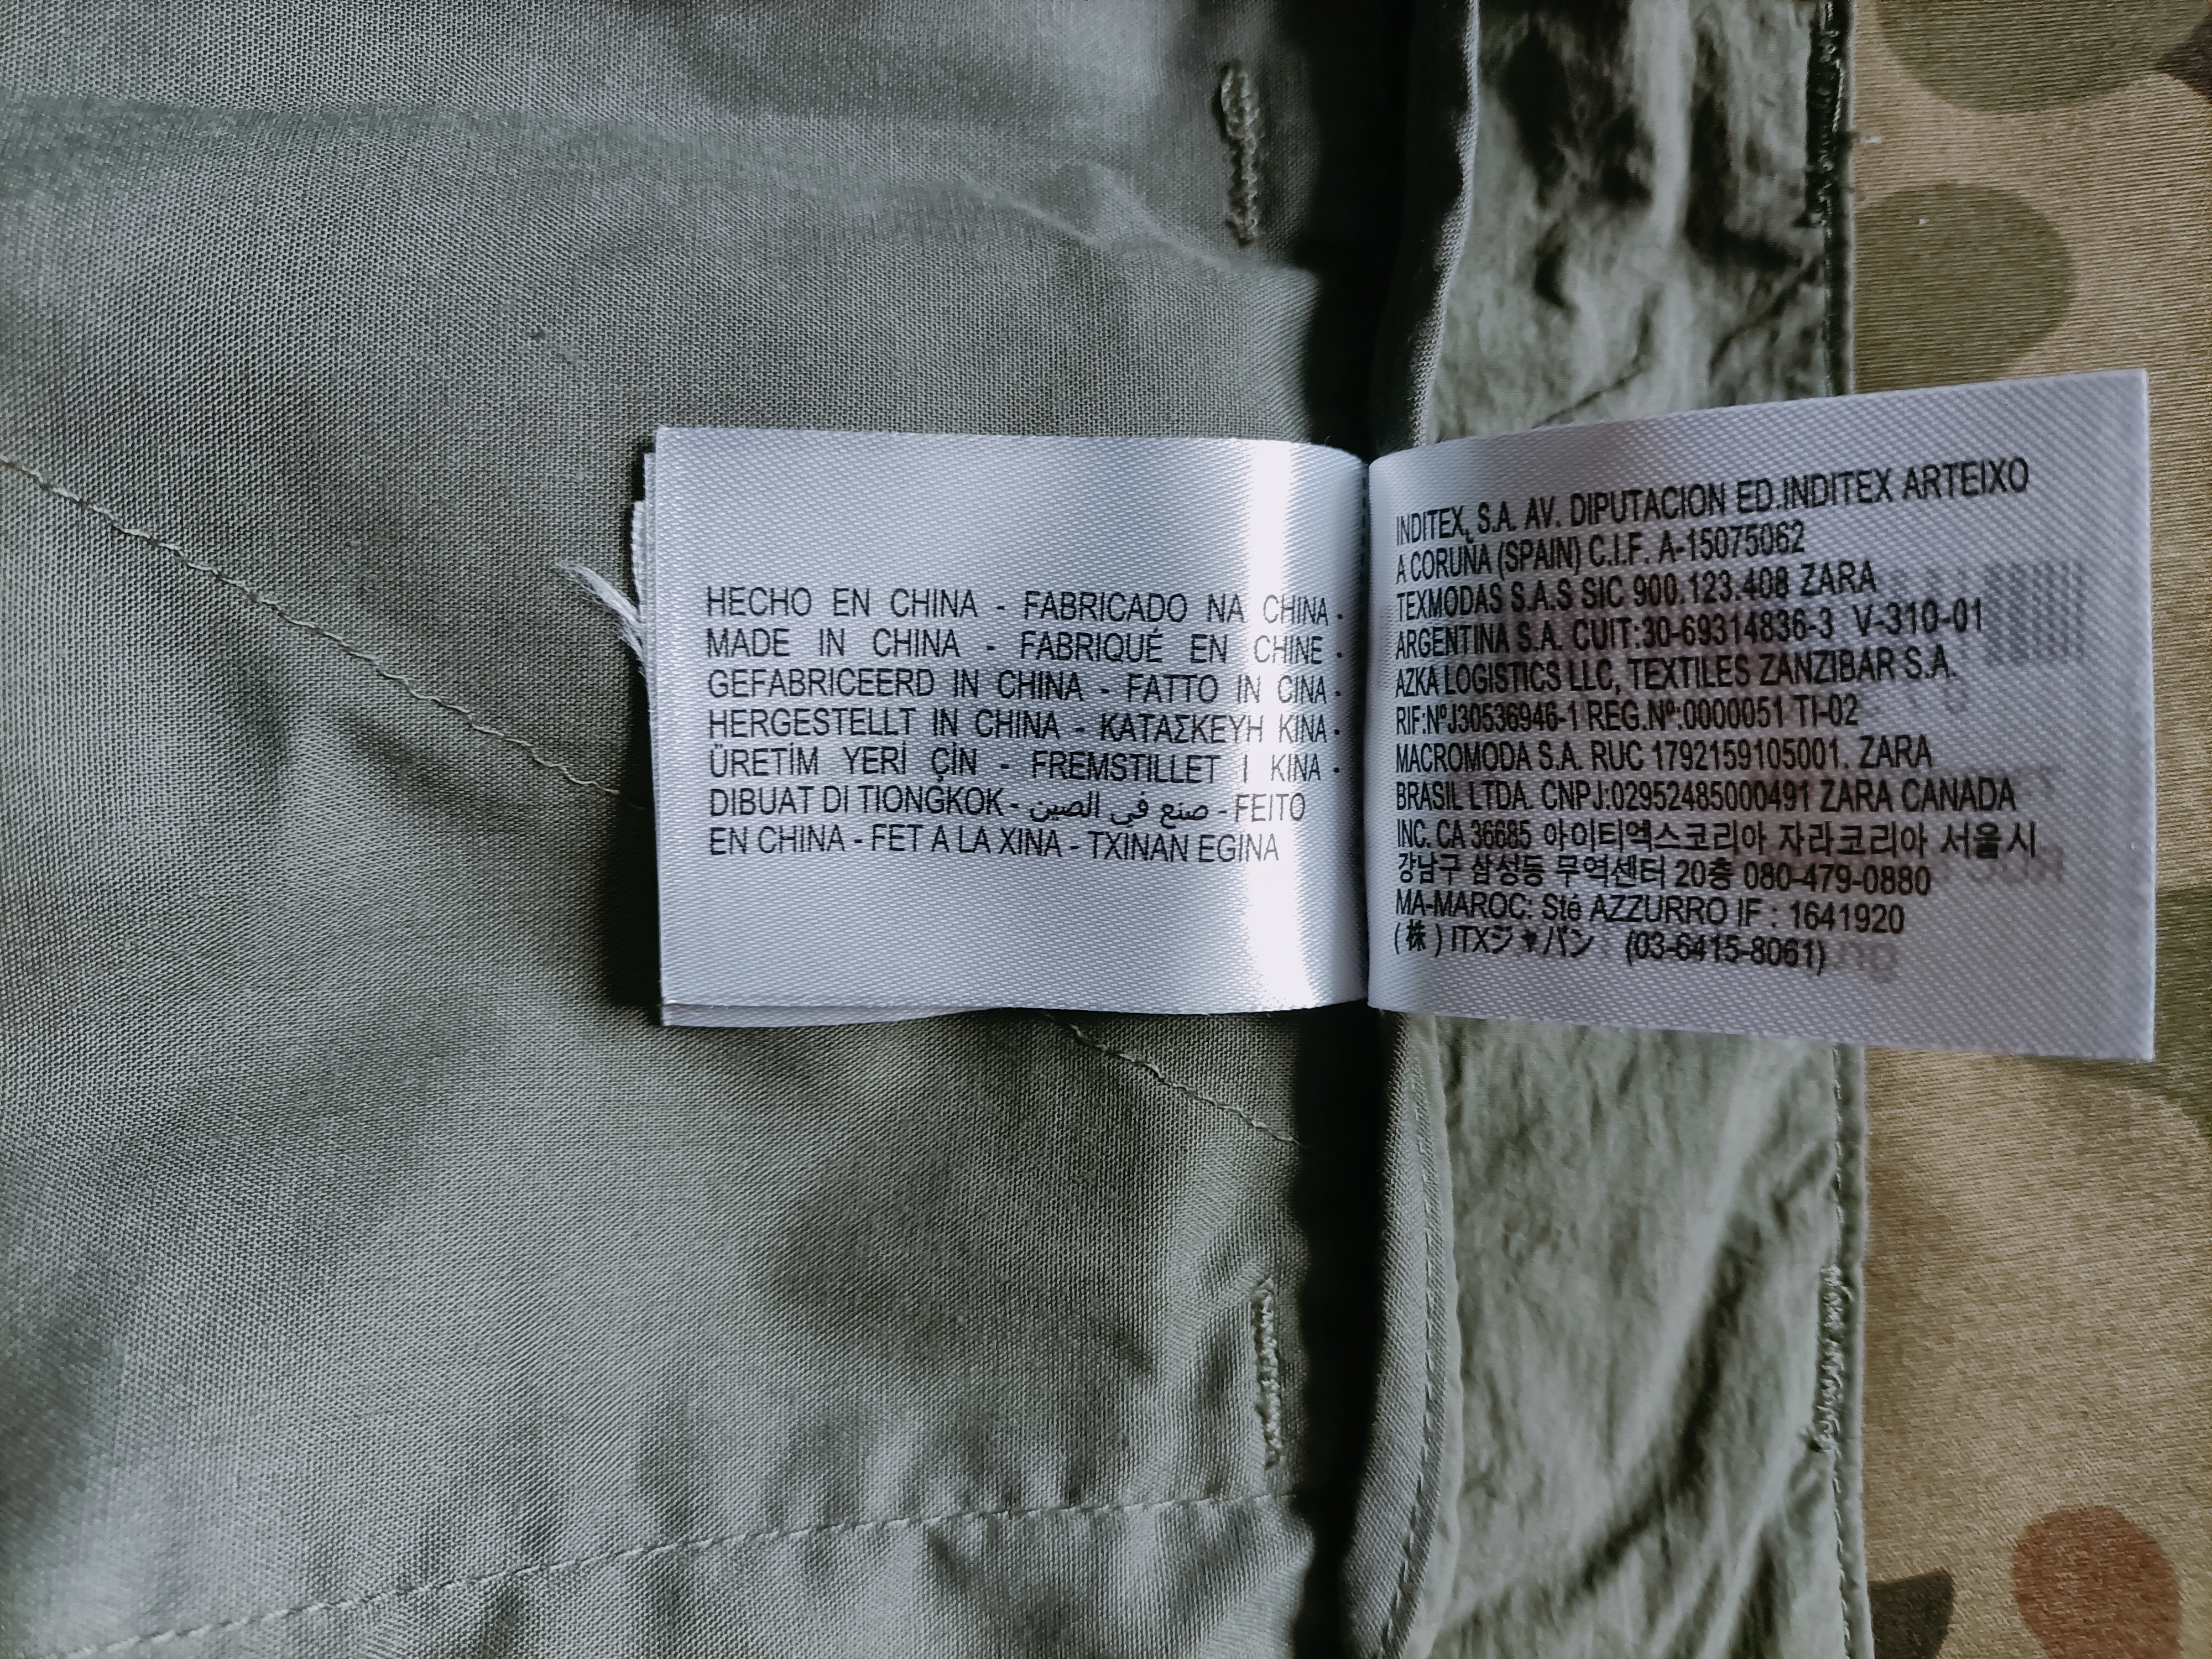 HECHO EN CHINA - FABRICADO NA CHINA -
MADE IN CHINA - FABRIQUÉ EN CHINE -
GEFABRICEERD IN CHINA - FATTO IN CINA -
HERGESTELLT IN CHINA - ΚΑΤΑΣΚΕΥΗ ΚΙΝΑ -
ÜRETİM YERİ ÇİN - FREMSTILLET I KINA -
DIBUAT DI TIONGKOK - صنع في الصين - FEITO
EN CHINA - FET A LA XINA - TXINAN EGINA
INDITEX, S.A. AV. DIPUTACION ED.INDITEX ARTEIXO
A CORUÑA (SPAIN) C.I.F. A-15075062
TEXMODAS S.A.S SIC 900.123.408 ZARA
ARGENTINA S.A. CUIT:30-69314836-3 V-310-01
AZKA LOGISTICS LLC, TEXTILES ZANZIBAR S.A.
RIF:NºJ30536946-1 REG.Nº:0000051 TI-02
MACROMODA S.A. RUC 1792159105001. ZARA
BRASIL LTDA. CNPJ:02952485000491 ZARA CANADA
INC. CA 36685 아이티엑스코리아 자라코리아 서울시
강남구 삼성동 무역센터 20층 080-479-0880
MA-MAROC: Sté AZZURRO IF : 1641920
(株) ITXジャパン (03-6415-8061)